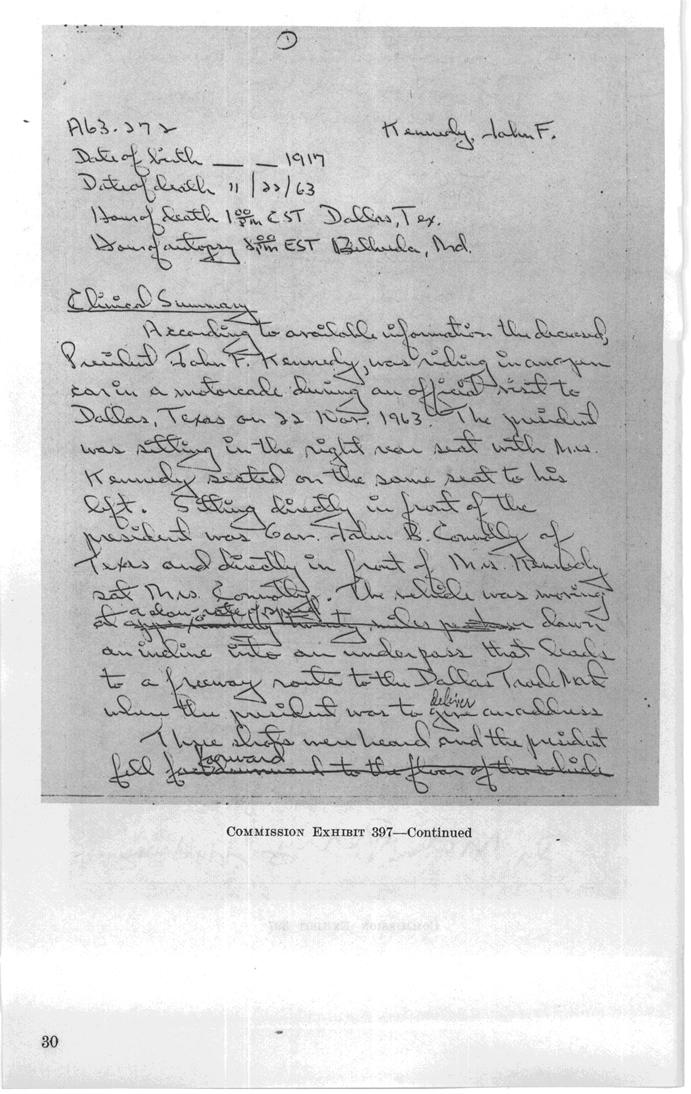 1
A63-272 Kennedy, John F.
Date of birth __ __ 1917
Date of death 11/22/63
Hour of death 1 00 PM CST Dallas, Tex.
Hour of autopsy 8 00 PM EST Bethesda, Md.
Clinical Summary
According to available information the deceased,
President John F. Kennedy, was riding in an open
car in a motorcade during an official visit to
Dallas, Texas on 22 Nov. 1963. The president
was sitting in the right rear seat with Mrs.
Kennedy seated on the same seat to his
left. Sitting directly in front of the
president was Gov. John B. Connolly of
Texas and directly in front of Mrs. Kennedy
sat Mrs. Connolly. The vehicle was moving
at a slow rate of speed
at approximately twenty miles per hour down
an incline into an underpass that leads
to a freeway route to the Dallas Trade Mart
deliver
when the president was to give an address
Three shots were heard and the president
forward
fell face downward to the floor of the vehicle
COMMISSION EXHIBIT 397—Continued
30